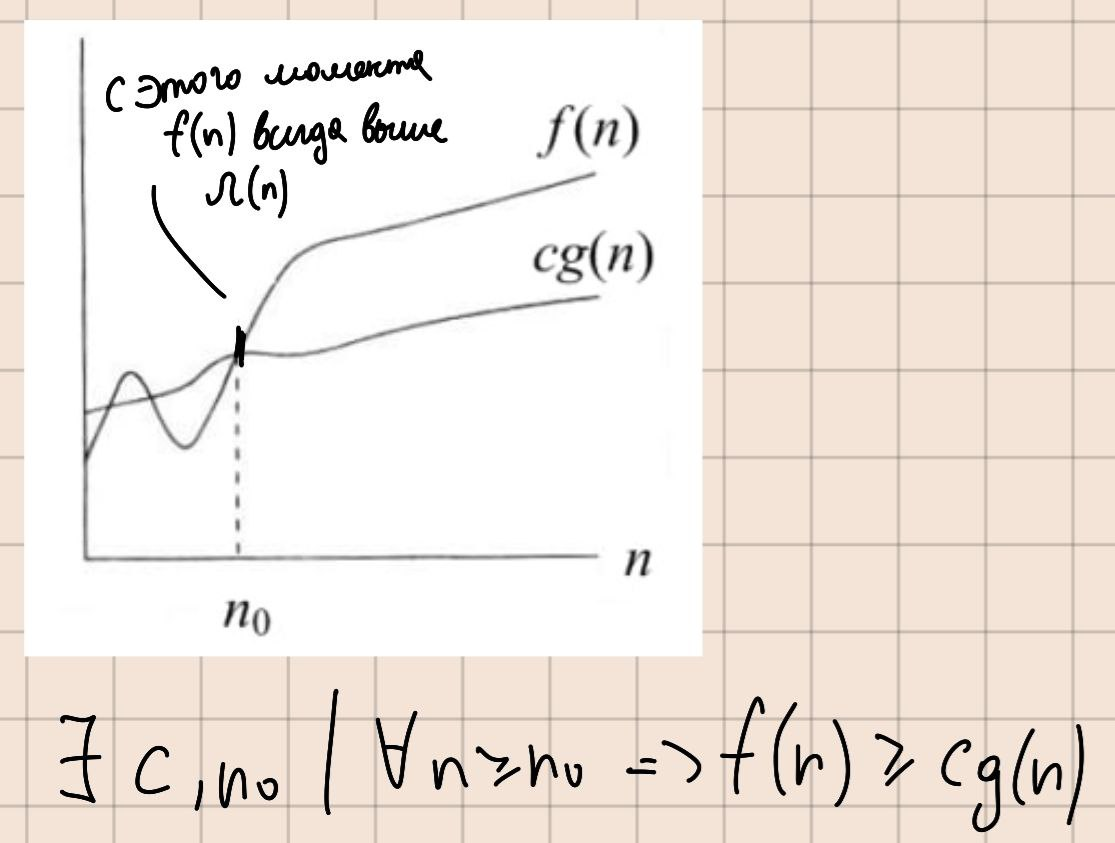 с этого момента
f(n) всигда выше
Ω(n)
f(n)
cg(n)
n
n₀
∃ c, n₀ | ∀ n ≥ n₀ => f(n) ≥ cg(n)